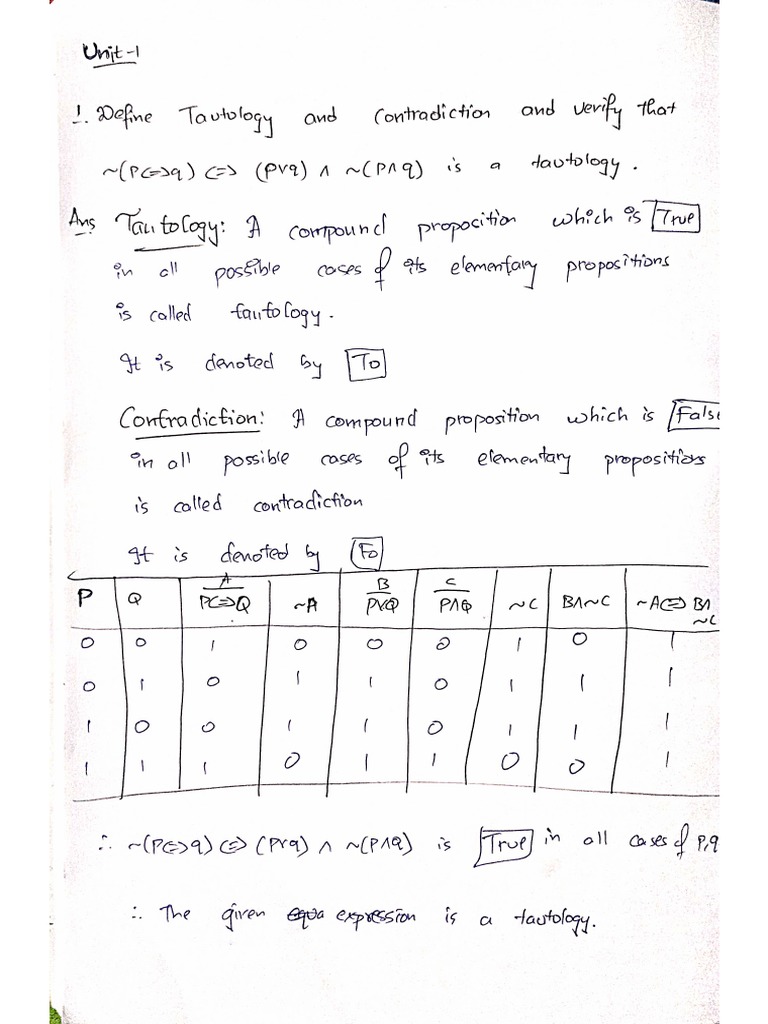 Unit-1
1. Define Tautology and contradiction and verify that
~(P⇔q) ⇔ (P∨q) ∧ ~(P∧q) is a tautology.
Ans Tautology: A compound proposition which is True
in all possible cases of its elementary propositions
is called tautology.
It is denoted by To
Contradiction: A compound proposition which is False
in all possible cases of its elementary propositions
is called contradiction
It is denoted by Fo
A B C
P Q P⇔Q ~A P∨Q P∧Q ~C B∧~C ~A⇔B∧
~C
0 0 1 0 0 0 1 0 1
0 1 0 1 1 0 1 1 1
1 0 0 1 1 0 1 1 1
1 1 1 0 1 1 0 0 1
∴ ~(P⇔q) ⇔ (P∨q) ∧ ~(P∧q) is True in all cases of P,q
∴ The given equa expression is a tautology.